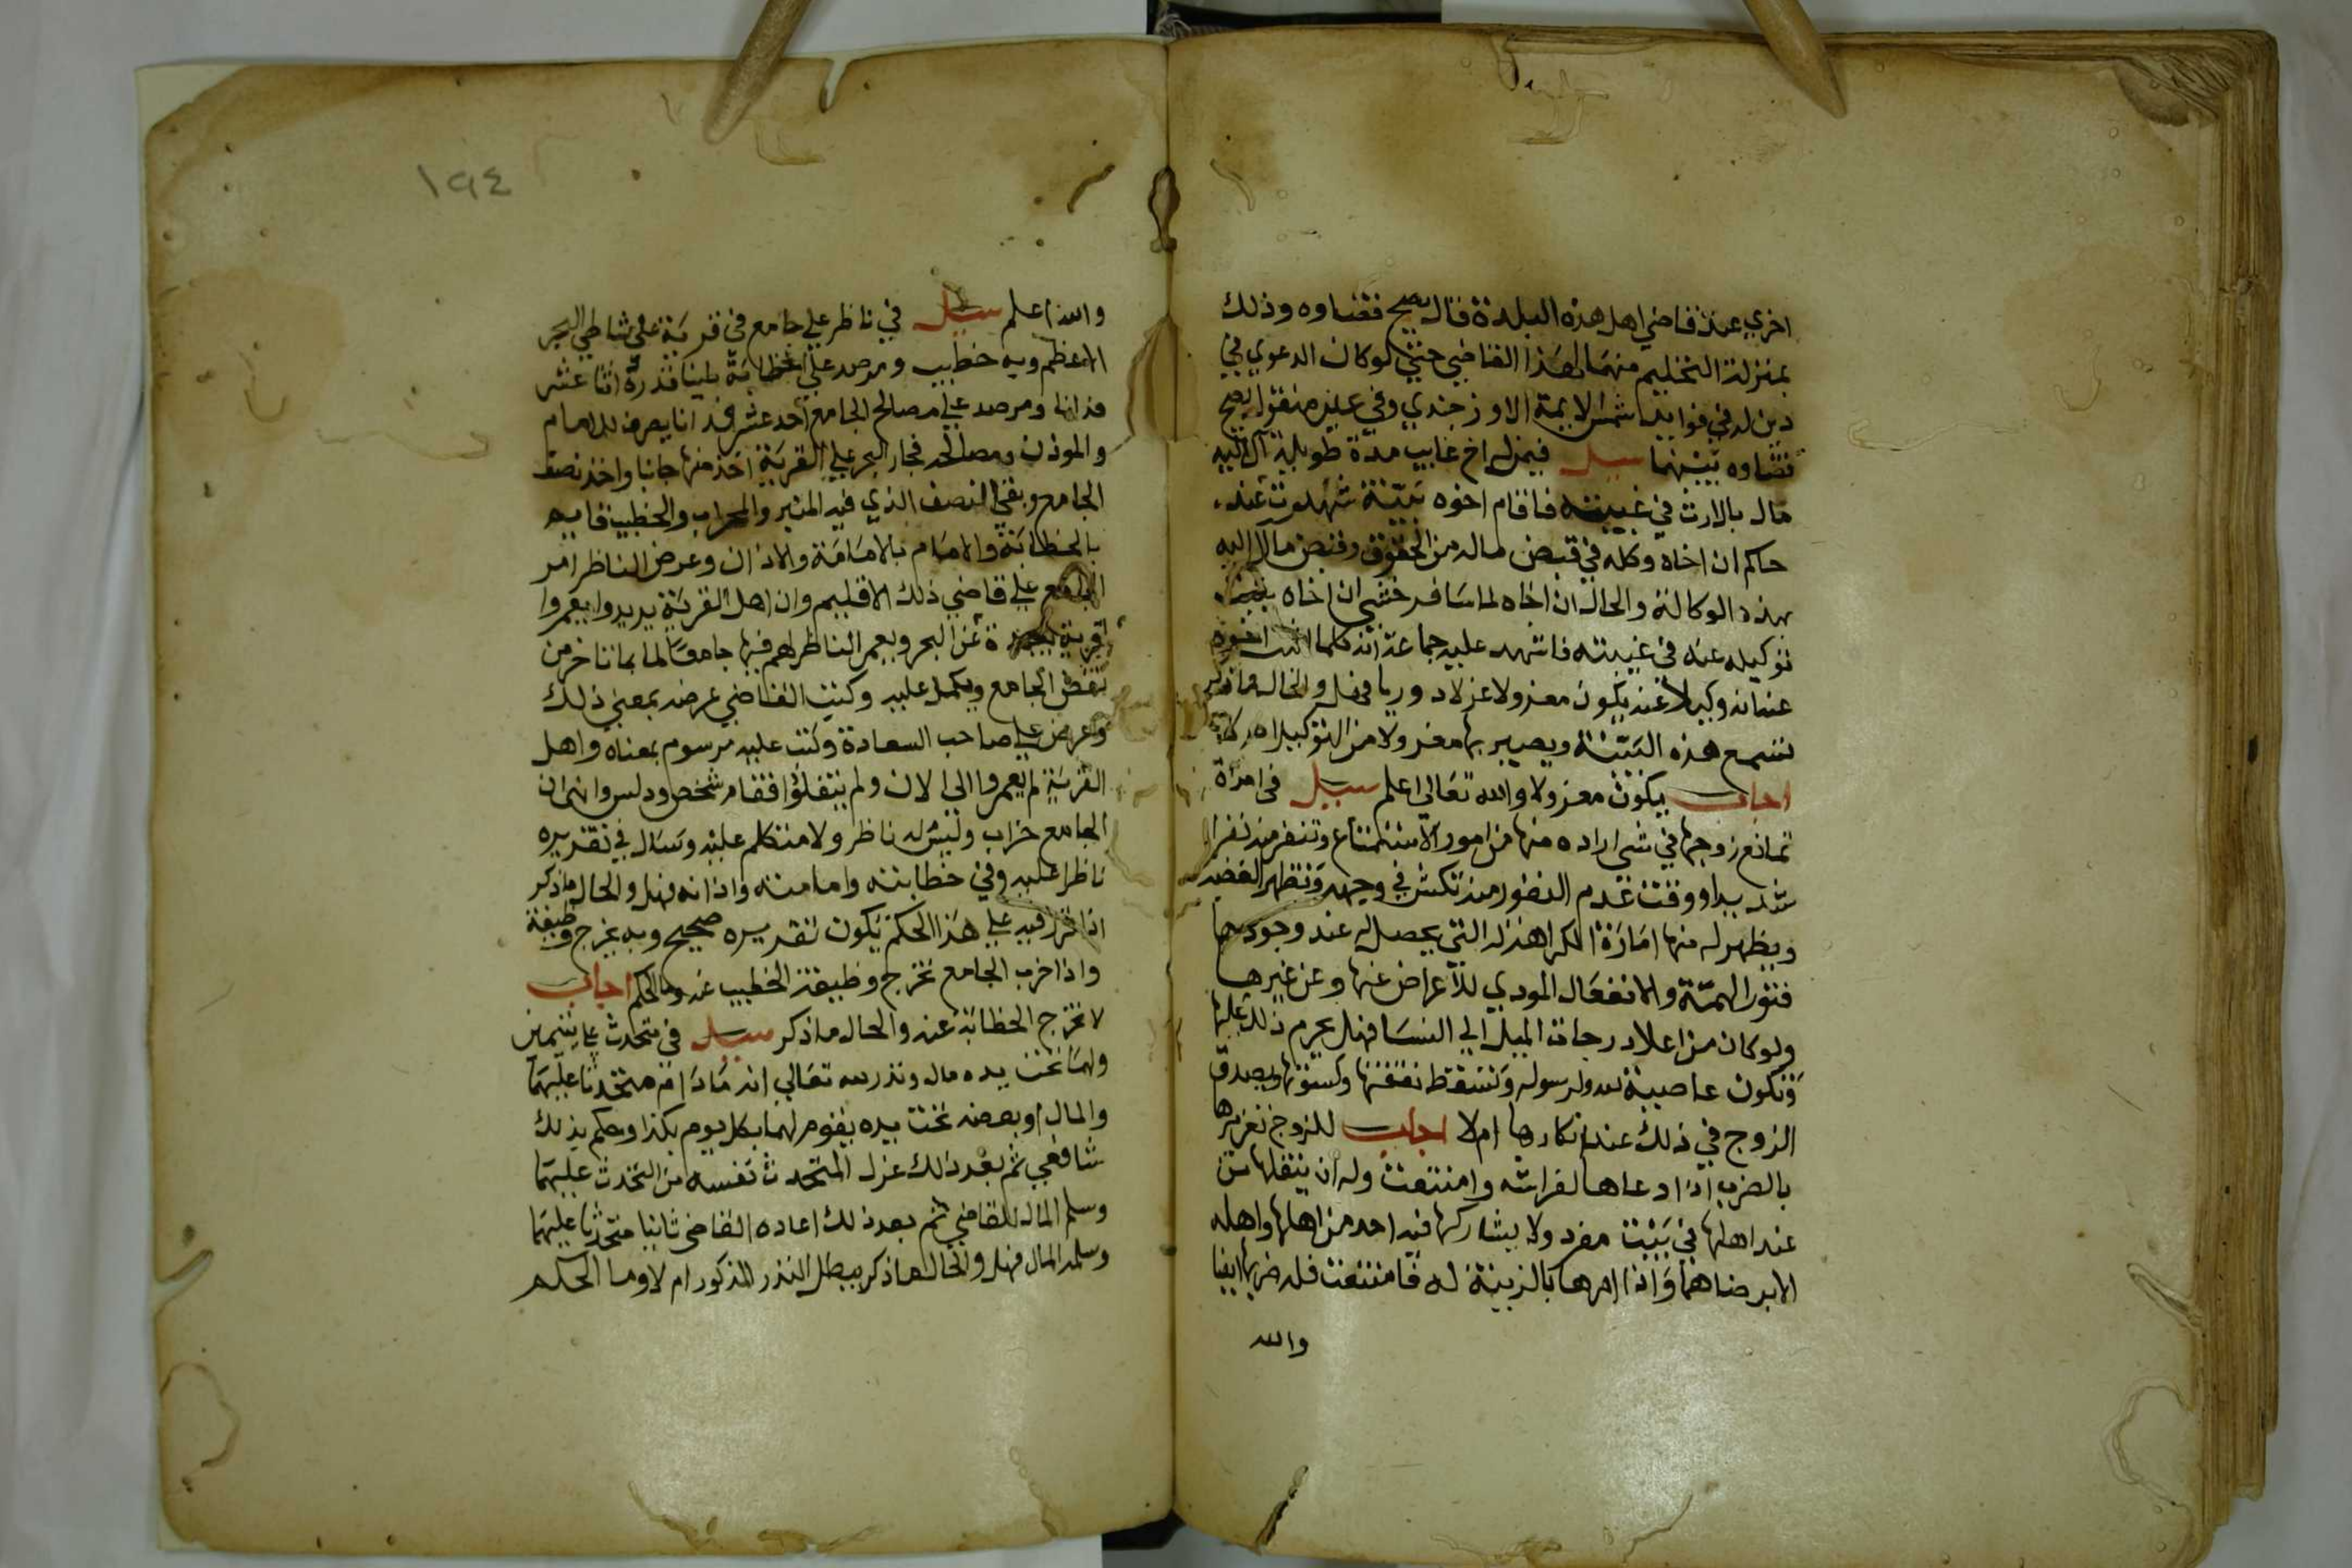 اخري عند قاضي اهل هذه البلدة قال يصح قضاوه وذلك
بمنزلة التحكيم منهما لهذا القاضي حتى لو كان الدعوي في
دين له في فوايد شمس الايمة الاوزجندي وفي عين منقول يصح
قضاوه بينهما سيل فيمن له اخ غايب مدة طويلة آل اليه
مال بالارث في غيبته فاقام اخوه بينة شهدوت عند
حاكم ان اخاه وكله في قبض ماله من الحقوق وقبض مال آل اليه
بهذه الوكالة والحال ان اخاه لما سافر خشي ان اخاه
توكيله عنه في غيبته فاشهد عليه جماعة انه كلما اثبت اخوه
عنه انه وكيلا عنه يكون معزولا عزلا دوريا فهل والحال ما ذكر
تسمع هذه البينة ويصير بها معزولا من التوكيل ام لا
اجاب يكون معزولا والله تعالي اعلم سيل في امراة
تمانع زوجها في شي اراده منها من امور الاستمتاع وتنفر منه نفرا
شديدا ووقت عدم النفور منه تكش في وجهه وتظهر الغضب
ويظهر له منها امارة الكراهة له التي يحصل له عند وجودها
فتور الهمة والانفعال المودي للاعراض عنها وعن غيرها
ولو كان من اعلا درجات الميل الي النسا فهل يحرم ذلك عليها
وتكون عاصية لله ولرسوله وتسقط نفقتها وكسوتها ويصدق
الزوج في ذلك عند انكارها ام لا اجاب للزوج تعزيرها
بالضرب اذا دعاها لفراشه وامتنعت وله ان ينقلها من
عند اهلها في بيت مفرد ولا يشاركها فيه احد من اهلها واهله
الا برضاهما واذا امرها بالزينة له فامتنعت فله ضربها ايضا
والله
١٩٤
والله اعلم سيل في ناظر علي جامع في قرية علي شاطي البحر
الاعظم وبه خطيب ومرصد علي الخطابة طينا قدره اثنا عشر
فدانا ومرصد علي مصالح الجامع احد عشر فدانا يصرف للامام
والموذن ومصالحه فجار البحر علي القرية اخذ منها جانبا واخذ نصف
الجامع وبقي النصف الذي فيه المنبر والمحراب والخطيب قايم
بالخطابة والامام بالامامة والاذان وعرض الناظر امر
الجامع علي قاضي ذلك الاقليم وان اهل القرية يريدوا يعمروا
قرية بعيدة عن البحر ويعمر الناظر لهم فيها جامعا لما بما تاخر من
نقض الجامع ويكمل عليه وكتب القاضي عرضه بمعني ذلك
واعرض علي صاحب السعادة وكتب عليه مرسوم بمعناه واهل
القرية لم يعمروا الي الان ولم ينتقلوا فقام شخص ودلس وانهي ان
الجامع خراب وليس له ناظر ولا متكلم عليه وسال في تقريره
ناظرا عليه وفي خطابته وامامته واذانه فهل والحال ما ذكر
اذا قرر فيه علي هذا الحكم يكون تقريره صحيح وبه يخرج وظيفة
واذا خرب الجامع تخرج وظيفة الخطيب عنه وما الحكم اجاب
لا تخرج الخطابة عنه والحال ما ذكر سيل في متحدث علي يتيمين
ولهما تحت يده مال ونذر لله تعالي انه ما دام متحدثا عليهما
والمال او بعضه تحت يده يقوم لهما بكل يوم بكذا وحكم بذلك
شافعي ثم بعد ذلك عزل المتحدث نفسه من التحدث عليهما
وسلم المال للقاضي ثم بعد ذلك اعاده القاضي ثانيا متحدثا عليهما
وسلمه المال فهل والحال ما ذكر يبطل النذر المذكور ام لا وما الحكم